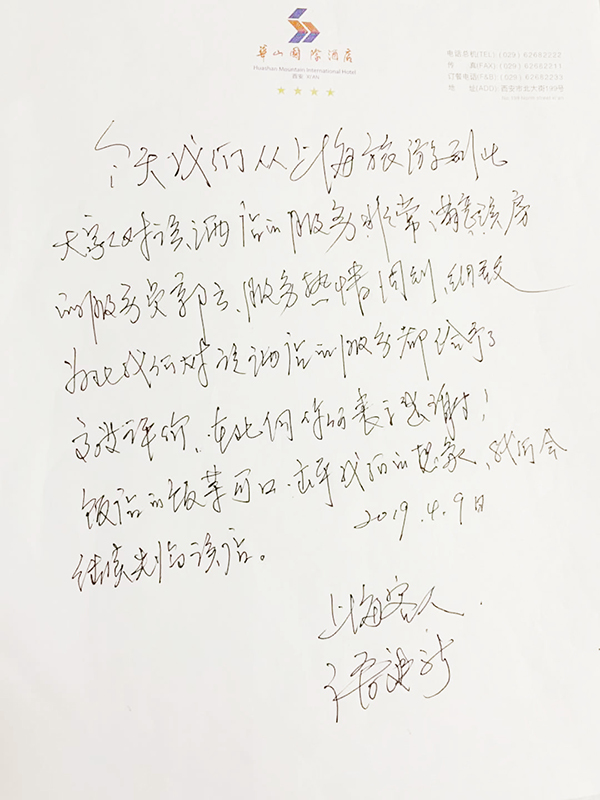 華山國際酒店
Huashan Mountain International Hotel
西安 XI'AN
电话总机(TEL): (029) 62682222
传 真(FAX): (029) 62682211
订餐电话(F&B): (029) 62682233
地 址(ADD): 西安市北大街199号
今天我们从上海旅游到此
大家对该酒店的服务非常满意该房
的服务员郭云、服务热情周到,细致
为此我们对该酒店的服务都给予了
高度评价,在此向你们表示感谢!
饭店的饭菜可口.出乎我们的想象,我们会
2019.4.9日
继续光临该店。
上海客人.